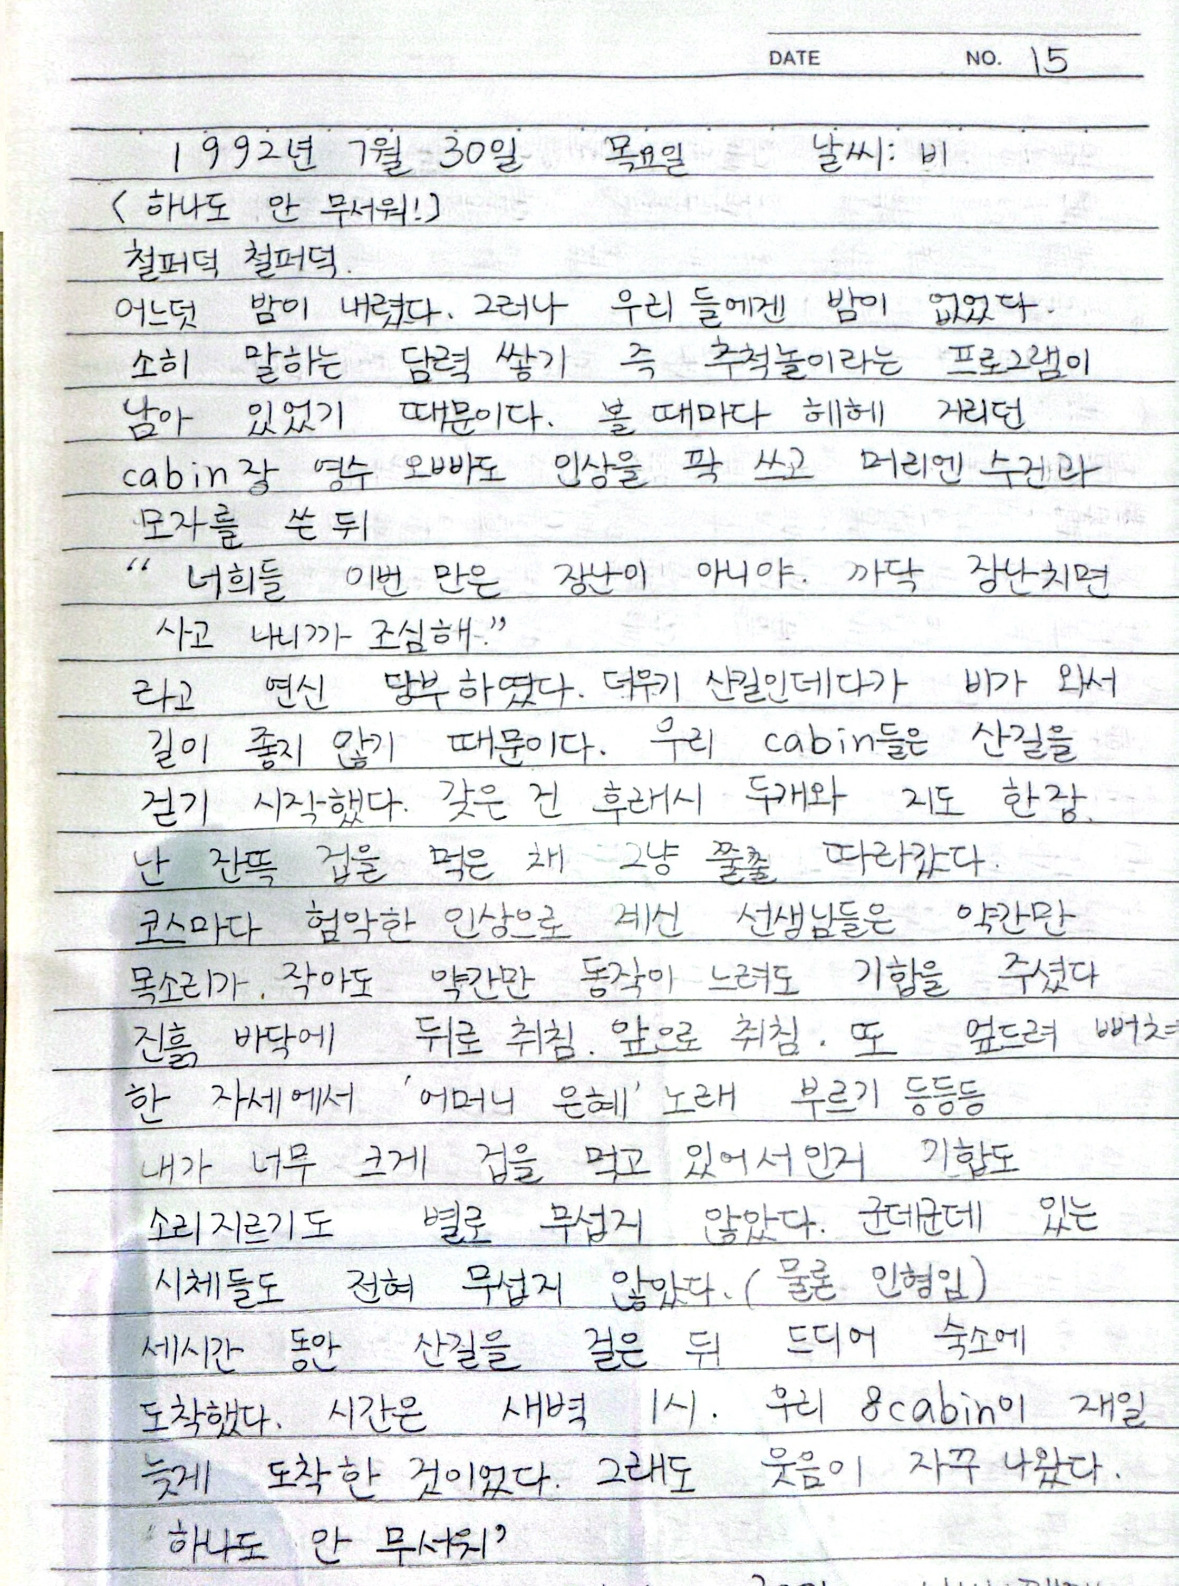 DATE NO. 15
1992년 7월 30일 목요일 날씨: 비
< 하나도 안 무서워!>
철퍼덕 철퍼덕.
어느덧 밤이 내렸다. 그러나 우리 들에겐 밤이 없었다.
소히 말하는 담력 쌓기 즉 추척놀이라는 프로그램이
남아 있었기 때문이다. 볼 때마다 헤헤 거리던
cabin장 영수 오빠도 인상을 팍 쓰고 머리엔 수건과
모자를 쓴 뒤
“ 너희들 이번 만은 장난이 아니야. 까닥 장난치면
사고 나니까 조심해.”
라고 연신 당부하였다. 더우기 산길인데다가 비가 와서
길이 좋지 않기 때문이다. 우리 cabin들은 산길을
걷기 시작했다. 갖은 건 후래시 두개와 지도 한장.
난 잔뜩 겁을 먹은 채 그냥 쭐쭐 따라갔다.
코스마다 험악한 인상으로 계신 선생님들은 약간만
목소리가 작아도 약간만 동작이 느려도 기합을 주셨다
진흙 바닥에 뒤로 취침. 앞으로 취침. 또 엎드려 뻐쳐
한 자세에서 '어머니 은혜' 노래 부르기 등등등
내가 너무 크게 겁을 먹고 있어서인지 기합도
소리지르기도 별로 무섭지 않았다. 군데군데 있는
시체들도 전혀 무섭지 않았다. ( 물론 인형임)
세시간 동안 산길을 걸은 뒤 드디어 숙소에
도착했다. 시간은 새벽 1시. 우리 8cabin이 재일
늦게 도착한 것이었다. 그래도 웃음이 자꾸 나왔다.
“하나도 안 무서워”